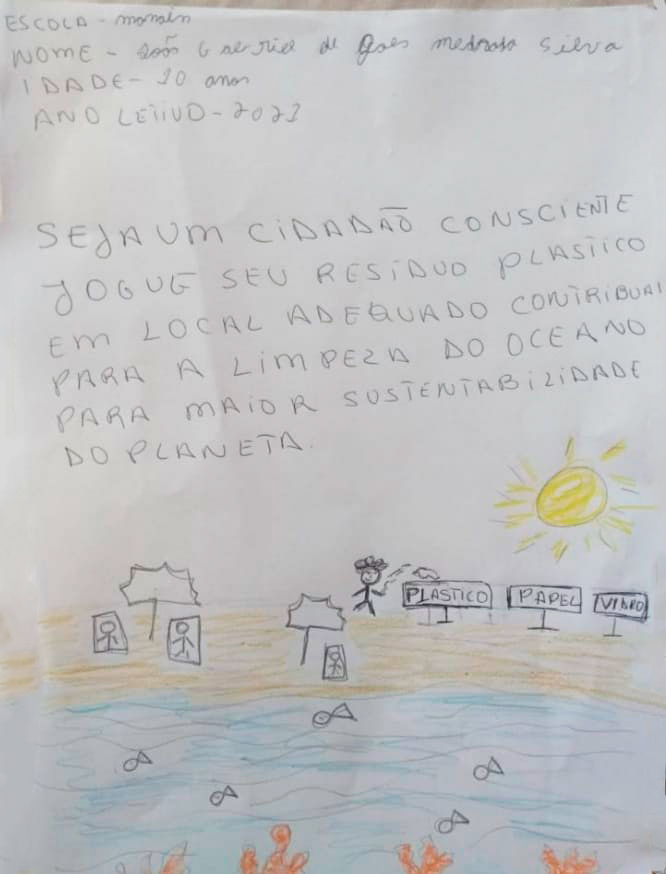 ESCOLA - monsin
NOME - João Gabriel de Goes medrado Silva
IDADE - 10 anos
ANO LETIVO - 2023
SEJA UM CIDADÃO CONSCIENTE
JOGUE SEU RESIDUO PLASTICO
EM LOCAL ADEQUADO CONTRIBUAI
PARA A LIMPEZA DO OCEANO
PARA MAIOR SUSTENTABILIDADE
DO PLANETA.
PLASTICO PAPEL VIDRO